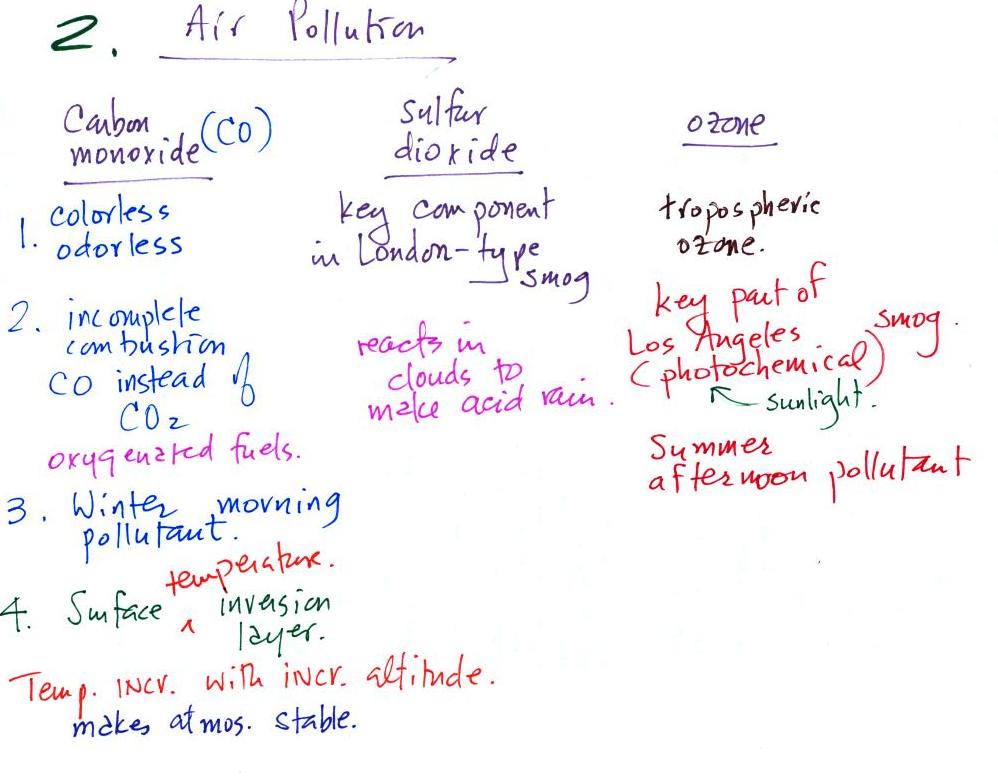 2. Air Pollution
Carbon
monoxide (CO)
1. colorless
odorless
2. incomplete
combustion
CO instead of
CO2
oxygenated fuels.
3. Winter morning
pollutant.
temperature.
4. Surface ^ inversion
layer.
Temp. incr. with incr. altitude.
makes atmos. stable.
Sulfur
dioxide
key component
in London-type
smog
reacts in
clouds to
make acid rain.
ozone
tropospheric
ozone.
key part of
Los Angeles smog.
(photochemical)
sunlight.
Summer
afternoon pollutant